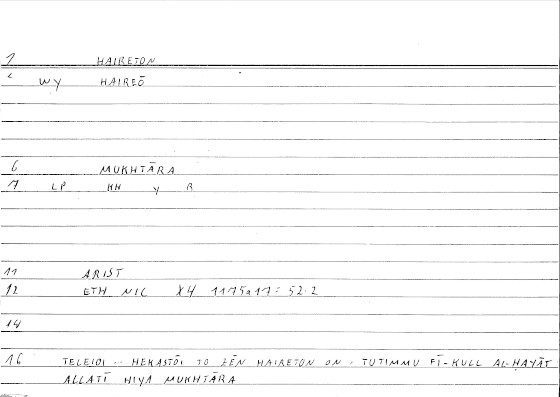 1 HAIRETON
2 WY HAIREŌ
6 MUKHTĀRA
7 LP KH Y R
11 ARIST
12 ETH NIC X4 1175a17 = 52.2
14
16 TELEIOI ... HEKASTŌI TO ZĒN HAIRETON ON - TUTIMMU FĪ-KULL AL-ḤAYĀT
ALLATĪ HIYA MUKHTĀRA